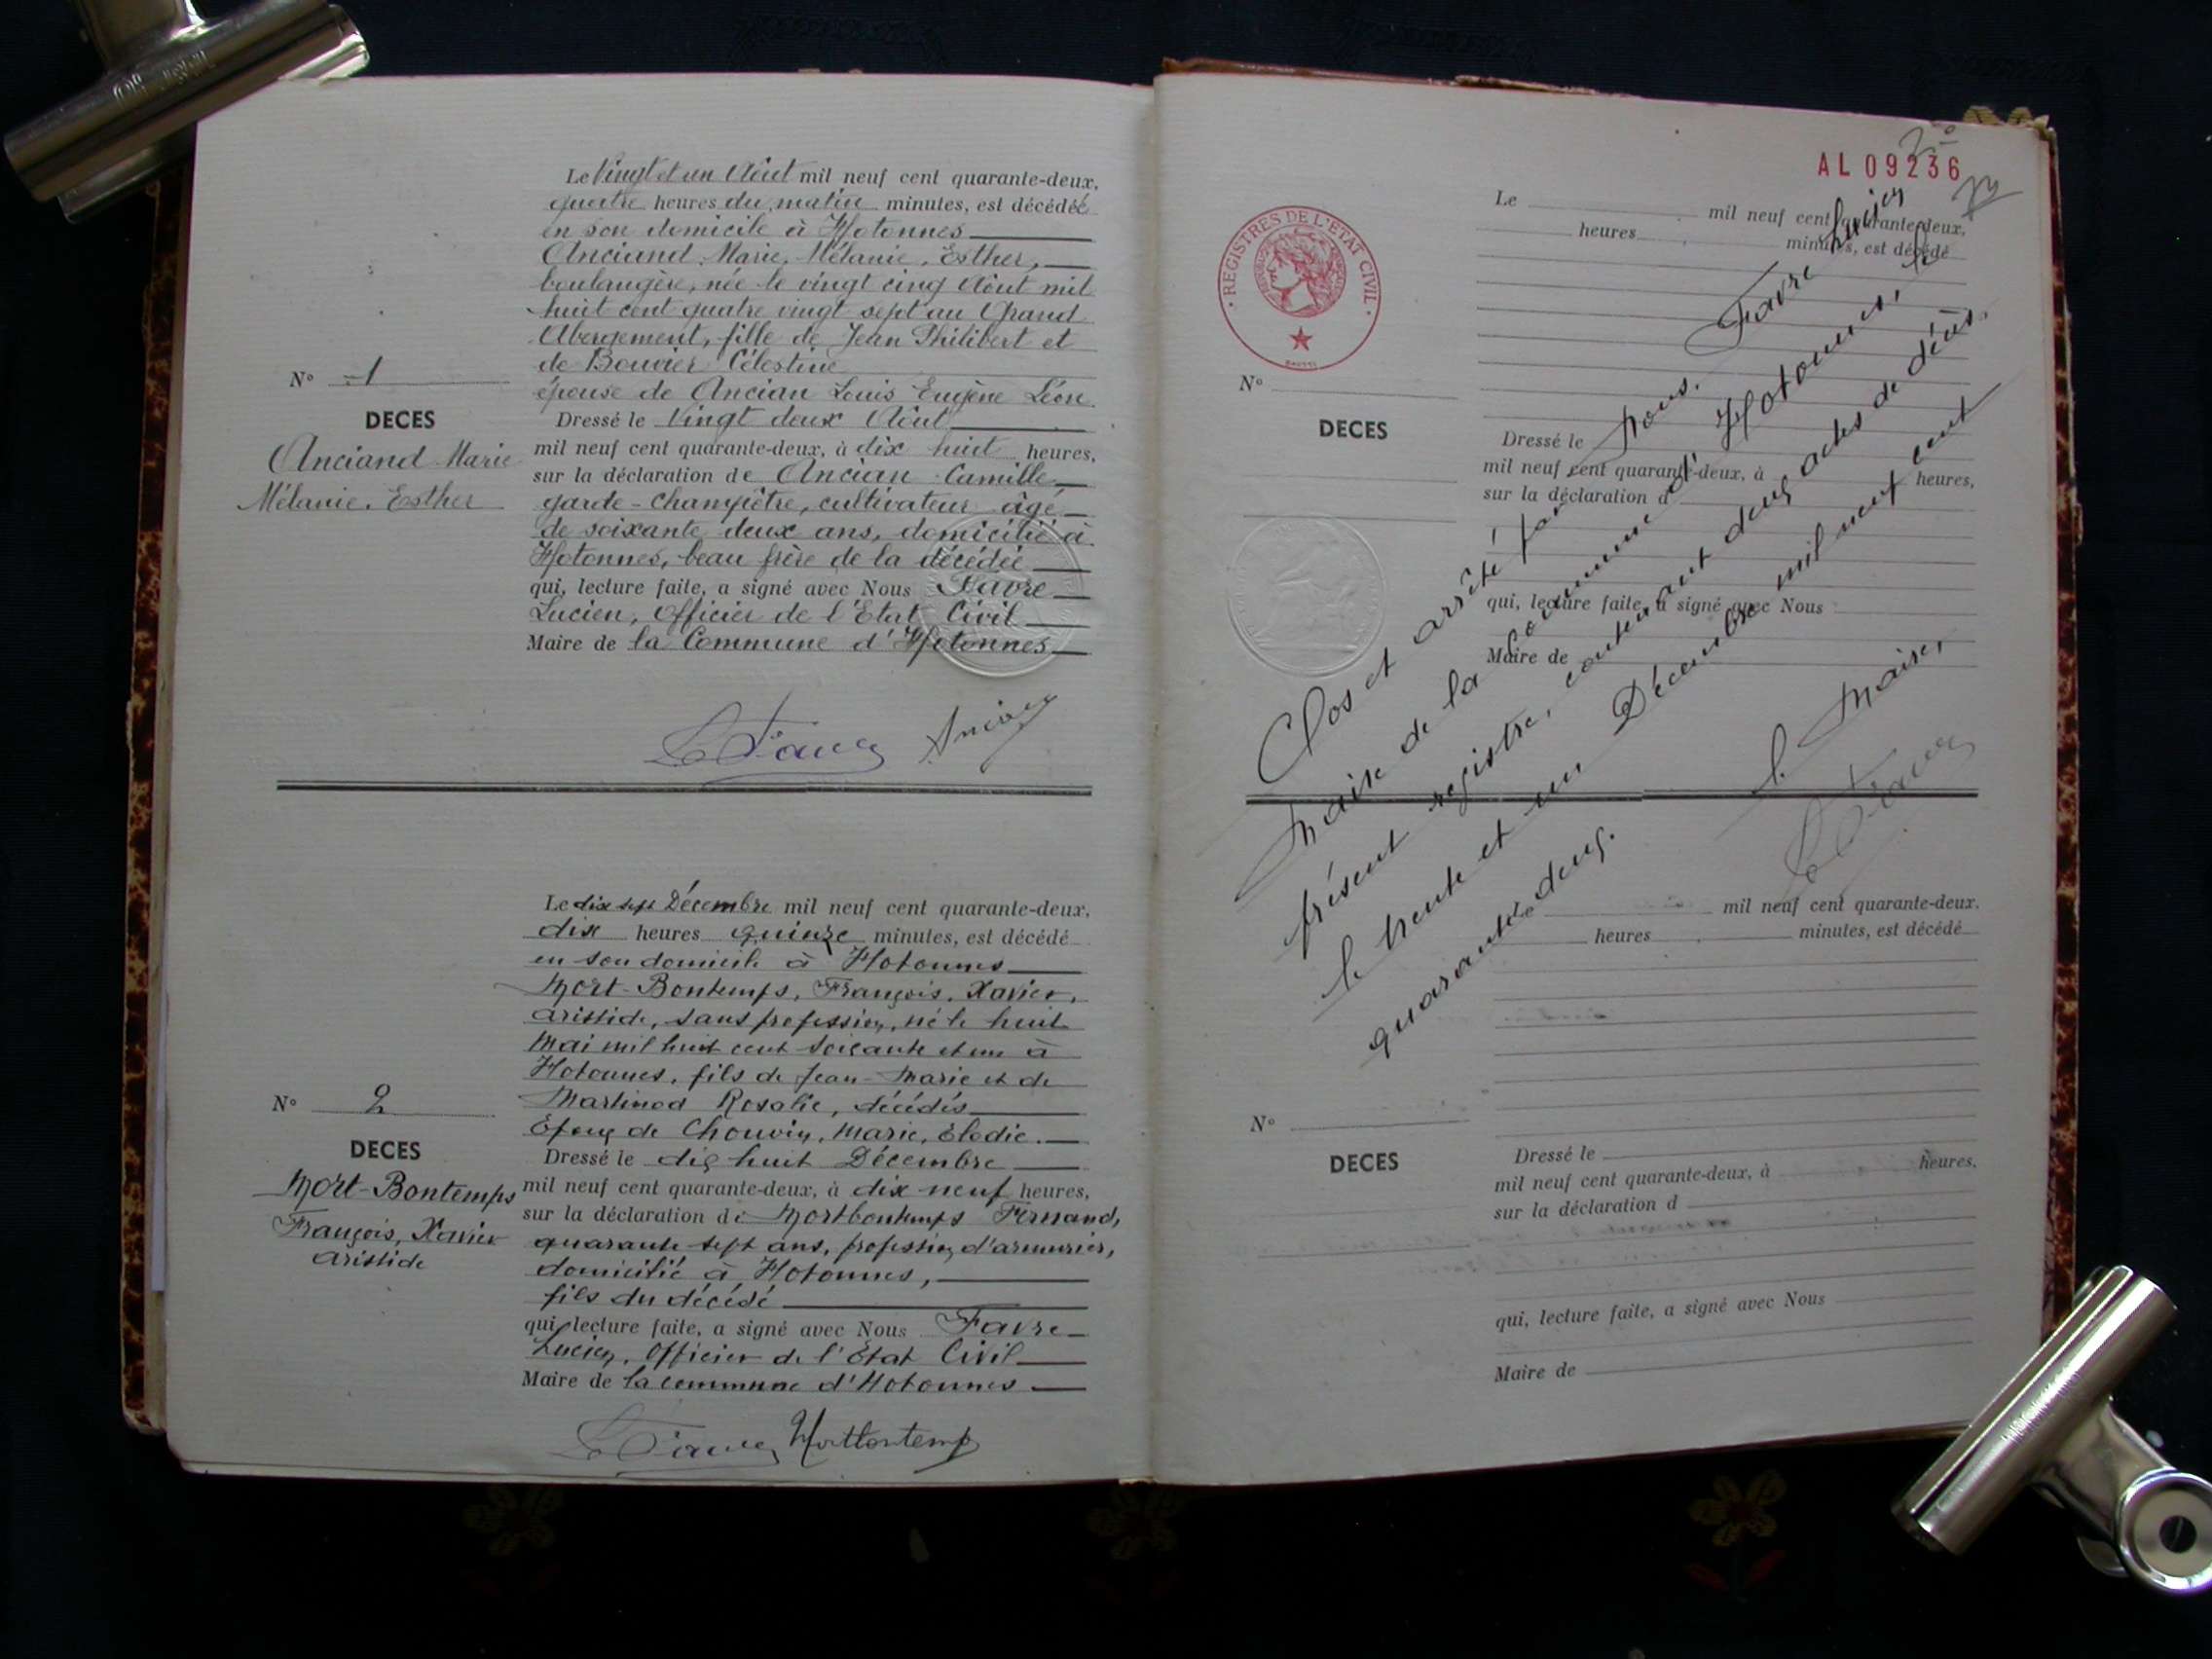 Le Vingt et un Août mil neuf cent quarante-deux,
quatre heures du matin minutes, est décédée
en son domicile à Hotonnes
Anciand Marie, Mélanie, Esther,
boulangère, née le vingt cinq Août mil
huit cent quatre vingt sept au Grand
Abergement, fille de Jean Philibert et
de Bouvier Célestine
épouse de Ancian Louis Eugène Léon
N° 1
DECES
Anciand Marie
Mélanie. Esther
Dressé le Vingt deux Août
mil neuf cent quarante-deux, à dix huit heures,
sur la déclaration de Ancian Camille
garde-champêtre, cultivateur âgé
de soixante deux ans, domicilié à
Hotonnes, beau frère de la décédée
qui, lecture faite, a signé avec Nous Favre
Lucien, Officier de l'Etat Civil
Maire de la Commune d'Hotonnes
L Favre Ancian
Le dix sept Décembre mil neuf cent quarante-deux,
dix heures quinze minutes, est décédé
en son domicile à Hotonnes
Mort-Bontemps, François, Xavier,
Aristide, sans profession, né le huit
Mai mil huit cent soixante et un à
Hotonnes, fils de Jean-Marie et de
Martinod Rosalie, décédés
Époux de Chouvin, Marie, Élodie.
N° 2
DECES
Mort-Bontemps
François, Xavier
Aristide
Dressé le dix huit Décembre
mil neuf cent quarante-deux, à dix neuf heures,
sur la déclaration de Mortbontemps Fernand,
quarante sept ans, profession d'armurier,
domicilié à Hotonnes,
fils du décédé
qui, lecture faite, a signé avec Nous Favre
Lucien, Officier de l'État Civil
Maire de la commune d'Hotonnes
L Favre Mortbontemps
AL 09236
REGISTRES DE L'ETAT CIVIL
Le mil neuf cent quarante-deux,
heures minutes, est décédé
N°
DECES
Dressé le
mil neuf cent quarante-deux, à heures,
sur la déclaration d
qui, lecture faite, a signé avec Nous
Maire de
Clos et arrêté par Nous, Favre Lucien
Maire de la Commune d'Hotonnes, le
présent registre, contenant deux actes de décès,
le trente et un Décembre mil neuf cent
quarante deux.
Le Maire,
L Favre
Le mil neuf cent quarante-deux.
heures minutes, est décédé
N°
DECES
Dressé le
mil neuf cent quarante-deux, à heures,
sur la déclaration d
qui, lecture faite, a signé avec Nous
Maire de